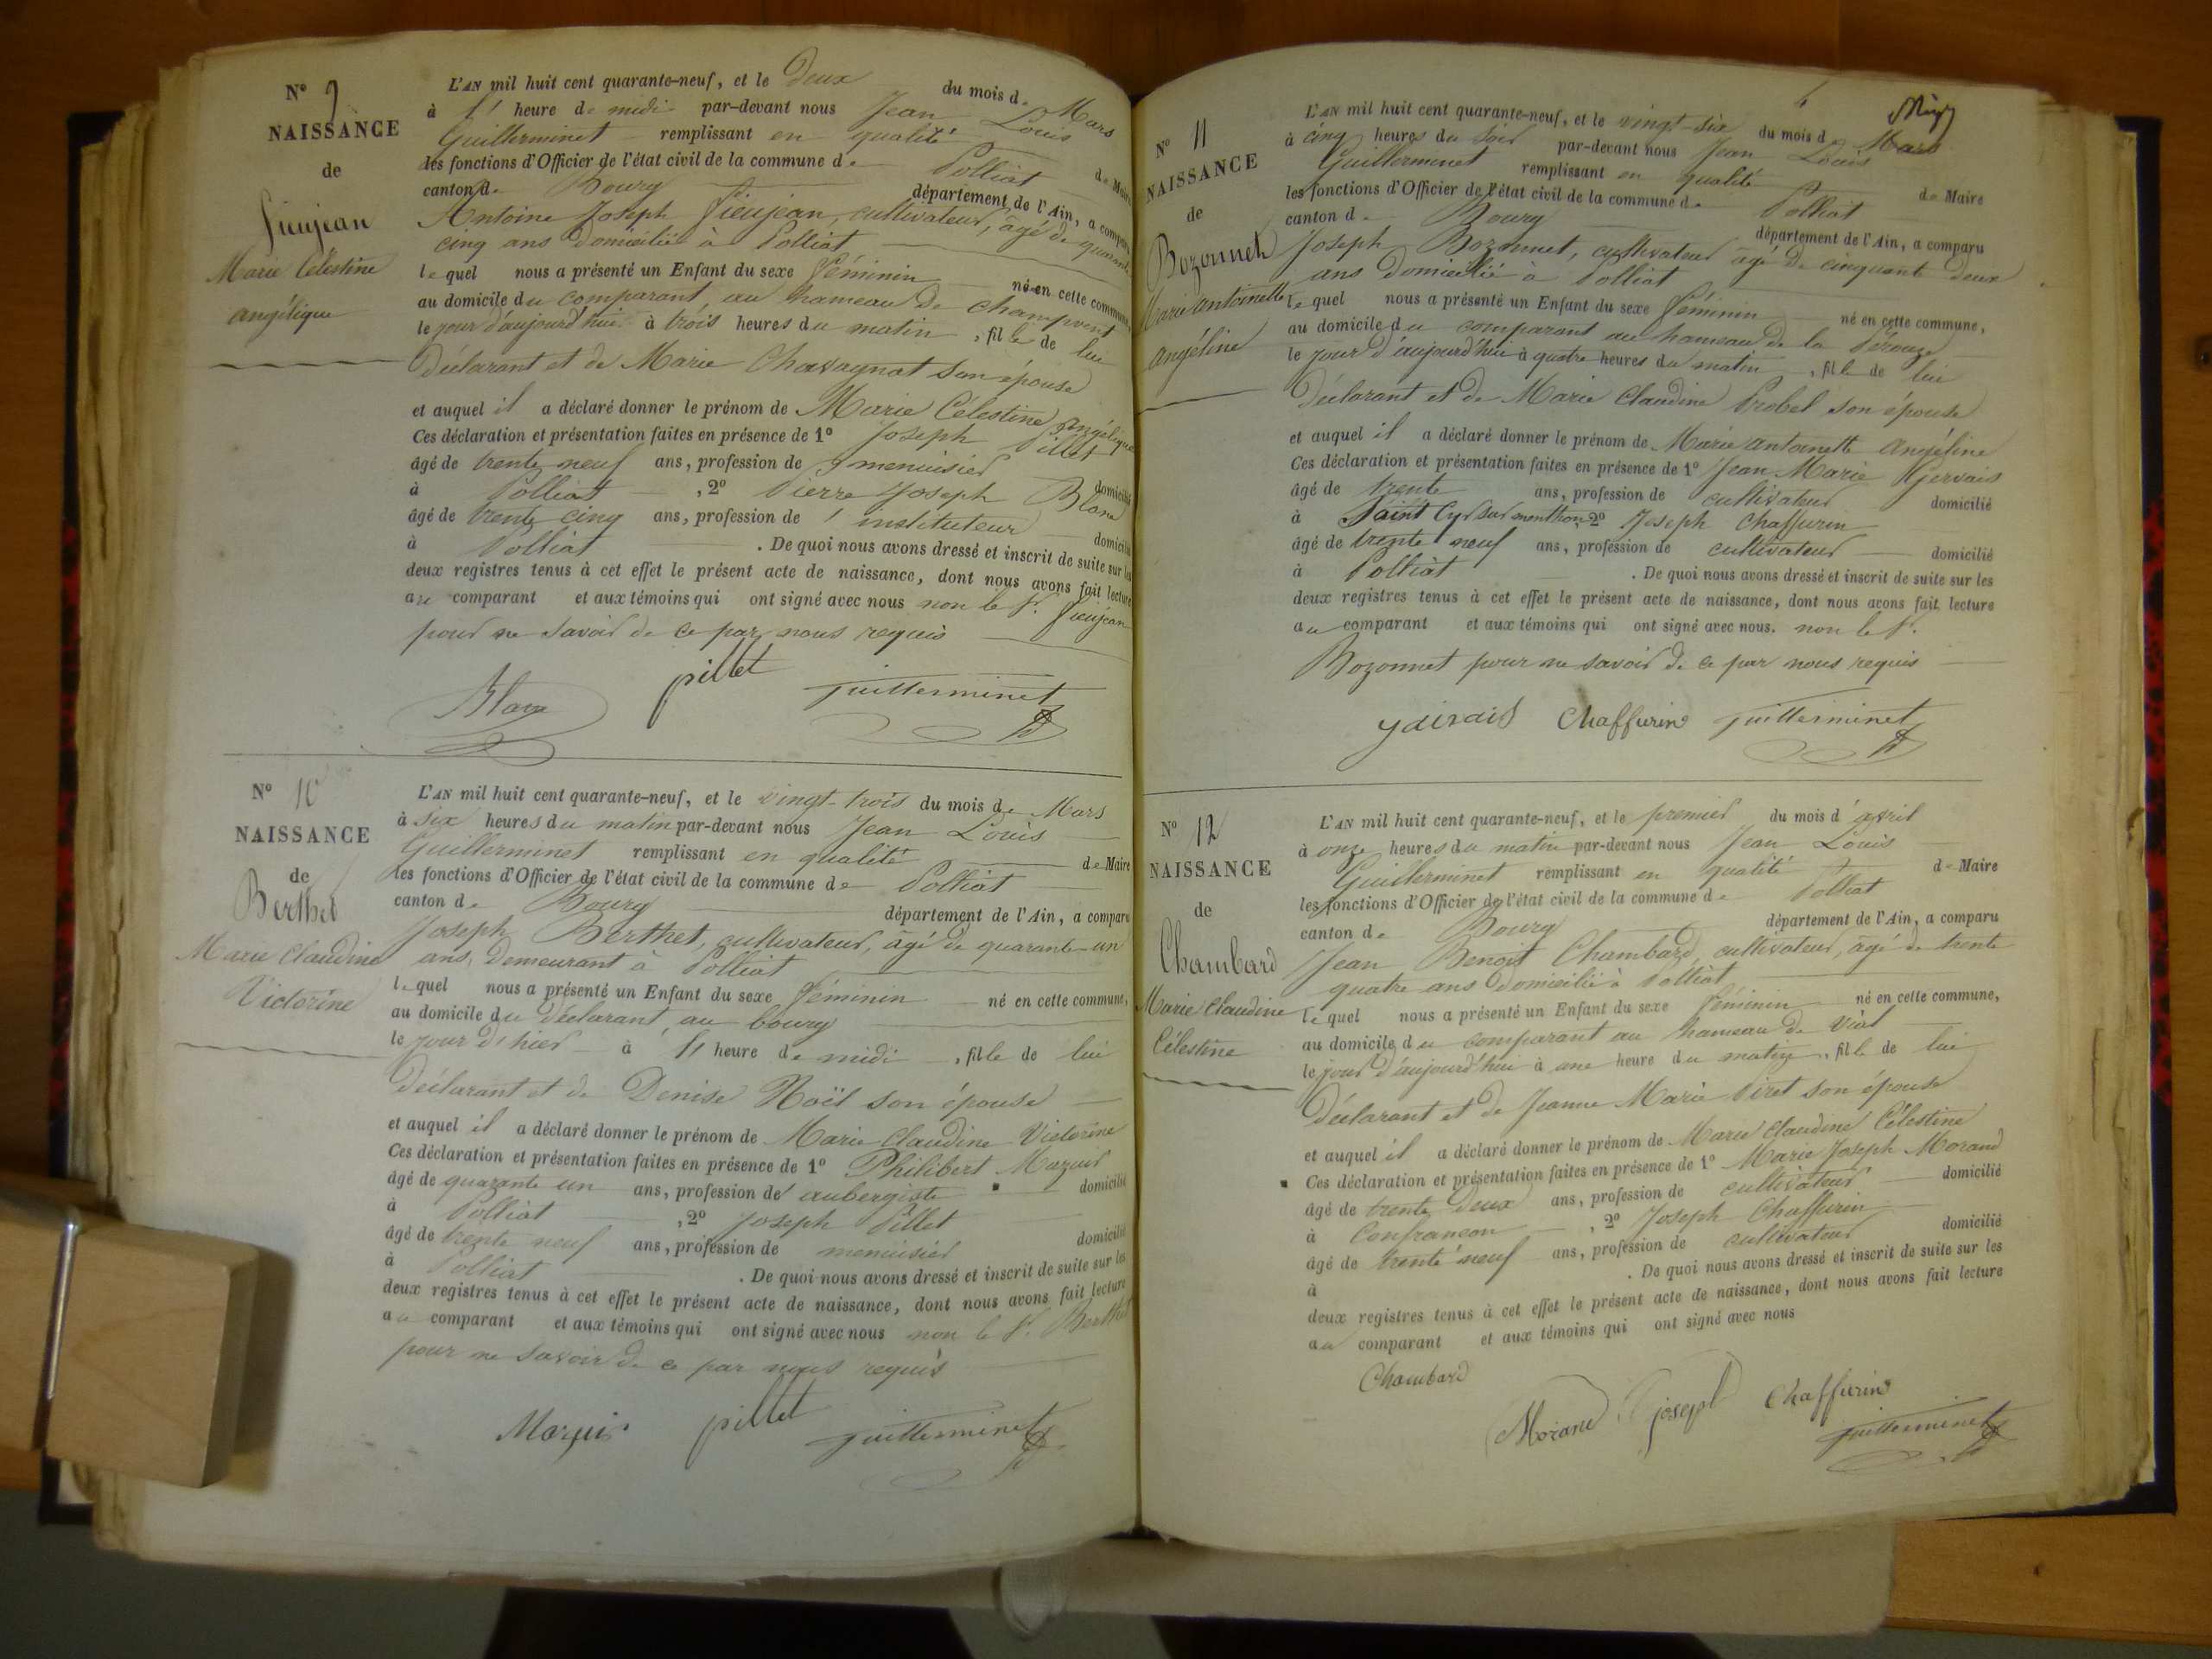 N° 9
NAISSANCE
de
Fieujean
Marie Célestine
angélique
L'AN mil huit cent quarante-neuf, et le Deux du mois de Mars
à l' heure de midi par-devant nous Jean Louis
Guillerminet remplissant en qualité de Maire
les fonctions d'Officier de l'état civil de la commune de Polliat
canton de Bourg département de l'Ain, a comparu
Antoine Joseph Fieujean, cultivateur, âgé de quarante
cinq ans domicilié à Polliat
lequel nous a présenté un Enfant du sexe féminin né en cette commune,
au domicile du comparant, au hameau de Champvent
le jour d'aujourd'hui à trois heures du matin, fille de lui
Déclarant et de Marie Chavagnat son épouse
et auquel il a déclaré donner le prénom de Marie Célestine Angélique
Ces déclaration et présentation faites en présence de 1° Joseph Pillet
âgé de trente neuf ans, profession de menuisier domicilié
à Polliat, 2° Pierre Joseph Blanc
âgé de trente cinq ans, profession d' instituteur domicilié
à Polliat. De quoi nous avons dressé et inscrit de suite sur les
deux registres tenus à cet effet le présent acte de naissance, dont nous avons fait lecture
au comparant et aux témoins qui ont signé avec nous non le Sr. Fieujean
pour ne savoir de ce par nous requis
Blanc pillet guillerminet
N° 10
NAISSANCE
de
Berthet
Marie Claudine
Victorine
L'AN mil huit cent quarante-neuf, et le vingt-trois du mois de Mars
à six heures du matin par-devant nous Jean Louis
Guillerminet remplissant en qualité de Maire
les fonctions d'Officier de l'état civil de la commune de Polliat
canton de Bourg département de l'Ain, a comparu
Joseph Berthet, cultivateur, âgé de quarante-un
ans, Demeurant à Polliat
lequel nous a présenté un Enfant du sexe féminin né en cette commune,
au domicile du déclarant, au bourg
le jour d'hier à l' heure de midi, fille de lui
Déclarant et de Denise Noël son épouse
et auquel il a déclaré donner le prénom de Marie Claudine Victorine
Ces déclaration et présentation faites en présence de 1° Philibert Mazuir
âgé de quarante un ans, profession d' aubergiste domicilié
à Polliat, 2° Joseph Pillet
âgé de trente neuf ans, profession de menuisier domicilié
à Polliat. De quoi nous avons dressé et inscrit de suite sur les
deux registres tenus à cet effet le présent acte de naissance, dont nous avons fait lecture
au comparant et aux témoins qui ont signé avec nous non le Sr. Berthet
pour ne savoir de ce par nous requis
pillet guillerminet
N° 11
NAISSANCE
de
Bozonnet
Marie antoinette
angéline
L'AN mil huit cent quarante-neuf, et le vingt-six du mois de Mars
à cinq heures du soir par-devant nous Jean Louis
Guillerminet remplissant en qualité de Maire
les fonctions d'Officier de l'état civil de la commune de Polliat
canton de Bourg département de l'Ain, a comparu
Joseph Bozonnet, cultivateur âgé de cinquante deux
ans Domicilié à Polliat
lequel nous a présenté un Enfant du sexe féminin né en cette commune,
au domicile du comparant au hameau de la Pérouze
le jour d'aujourd'hui à quatre heures du matin, fille de lui
Déclarant et de Marie Claudine Probel son épouse
et auquel il a déclaré donner le prénom de Marie antoinette angéline
Ces déclaration et présentation faites en présence de 1° Jean Marie Gervais
âgé de trente ans, profession de cultivateur domicilié
à Saint Cyr sur menthon, 2° Joseph Chaffurin
âgé de trente neuf ans, profession de cultivateur domicilié
à Polliat. De quoi nous avons dressé et inscrit de suite sur les
deux registres tenus à cet effet le présent acte de naissance, dont nous avons fait lecture
au comparant et aux témoins qui ont signé avec nous. non le Sr.
Bozonnet pour ne savoir de ce par nous requis
Chaffurin guillerminet
N° 12
NAISSANCE
de
Chambard
Marie Claudine
Célestine
L'AN mil huit cent quarante-neuf, et le premier du mois d'avril
à onze heures du matin par-devant nous Jean Louis
Guillerminet remplissant en qualité de Maire
les fonctions d'Officier de l'état civil de la commune de Polliat
canton de Bourg département de l'Ain, a comparu
Jean Benoit Chambard, cultivateur, âgé de trente
quatre ans domicilié à Polliat
lequel nous a présenté un Enfant du sexe féminin né en cette commune,
au domicile du comparant au hameau de Vial
le jour d'aujourd'hui à une heure du matin, fille de lui
Déclarant et de Jeanne Marie Piret son épouse
et auquel il a déclaré donner le prénom de Marie Claudine Célestine
Ces déclaration et présentation faites en présence de 1° Marie Joseph Morand
âgé de trente deux ans, profession de cultivateur domicilié
à Confrançon, 2° Joseph Chaffurin
âgé de trente neuf ans, profession de cultivateur domicilié
à . De quoi nous avons dressé et inscrit de suite sur les
deux registres tenus à cet effet le présent acte de naissance, dont nous avons fait lecture
au comparant et aux témoins qui ont signé avec nous
Chambard
Morand joseph Chaffurin
guillerminet